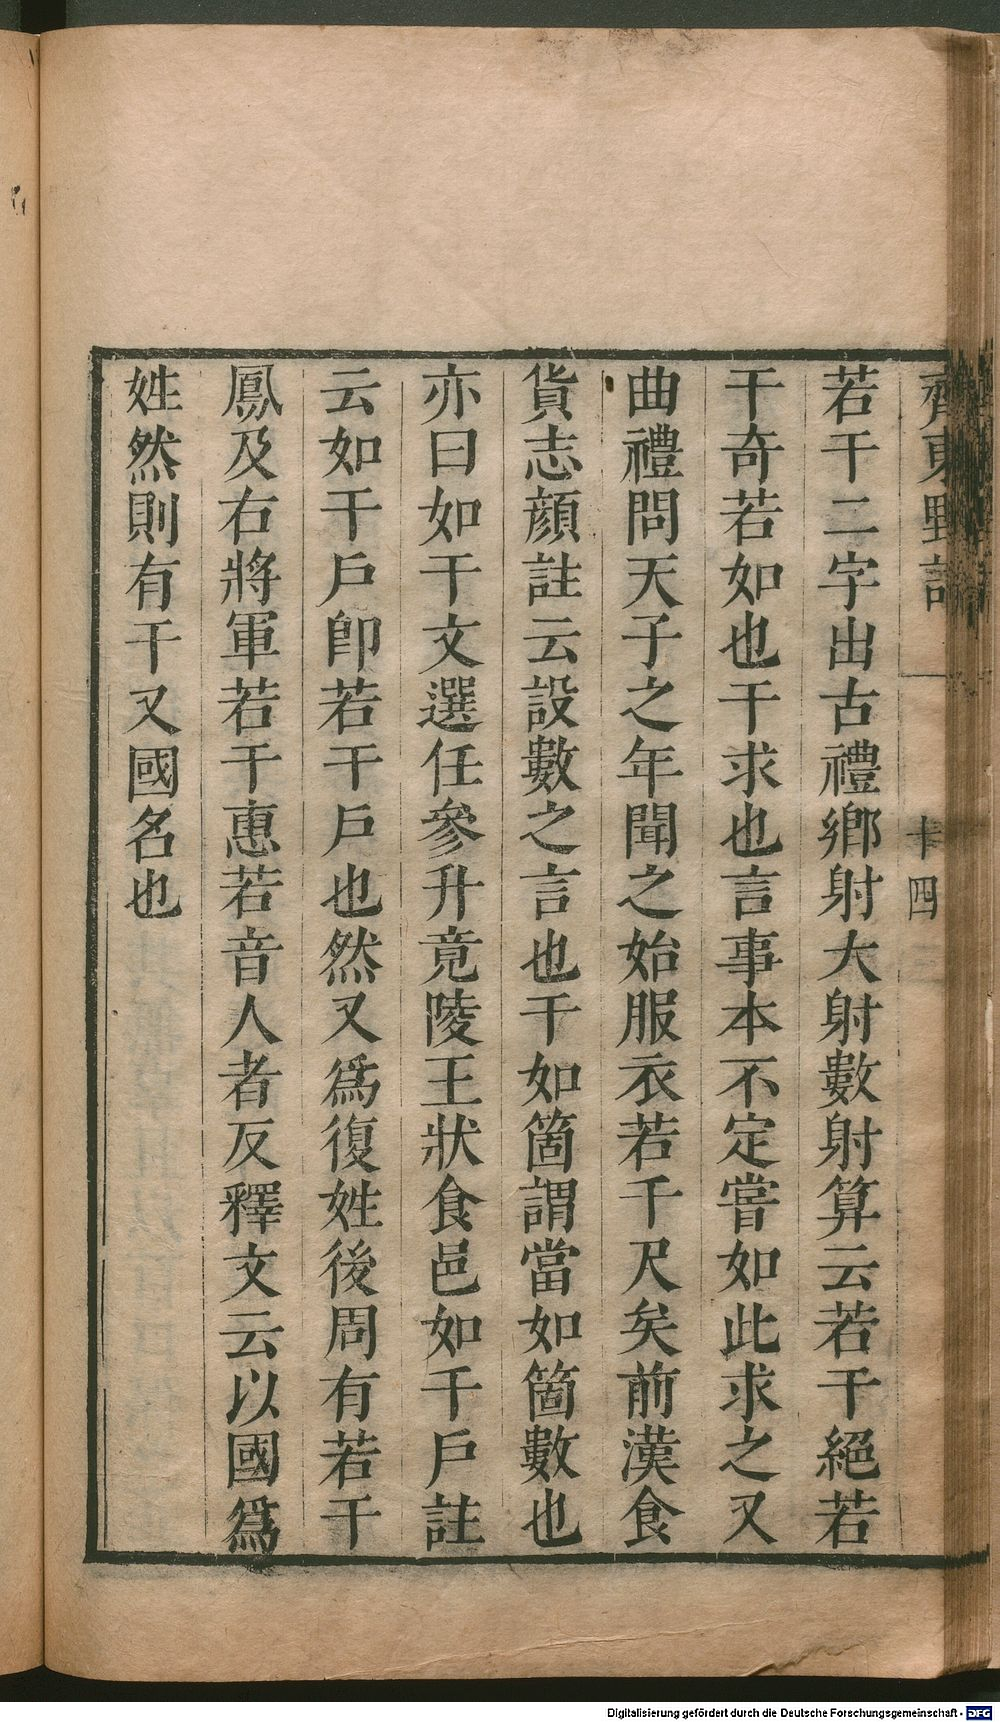 齊東野語
十四
若干二字出古禮鄉射大射數射算云若干絕若
干奇若如也干求也言事本不定嘗如此求之又
曲禮問天子之年聞之始服衣若干尺矣前漢食
貨志顏註云設數之言也干如箇謂當如箇數也
亦曰如干文選任參升竟陵王狀食邑如干戶註
云如干戶卽若干戶也然又爲復姓後周有若干
鳳及右將軍若干惠若音人者反釋文云以國爲
姓然則有干又國名也
Digitalisierung gefördert durch die Deutsche Forschungsgemeinschaft - DFG